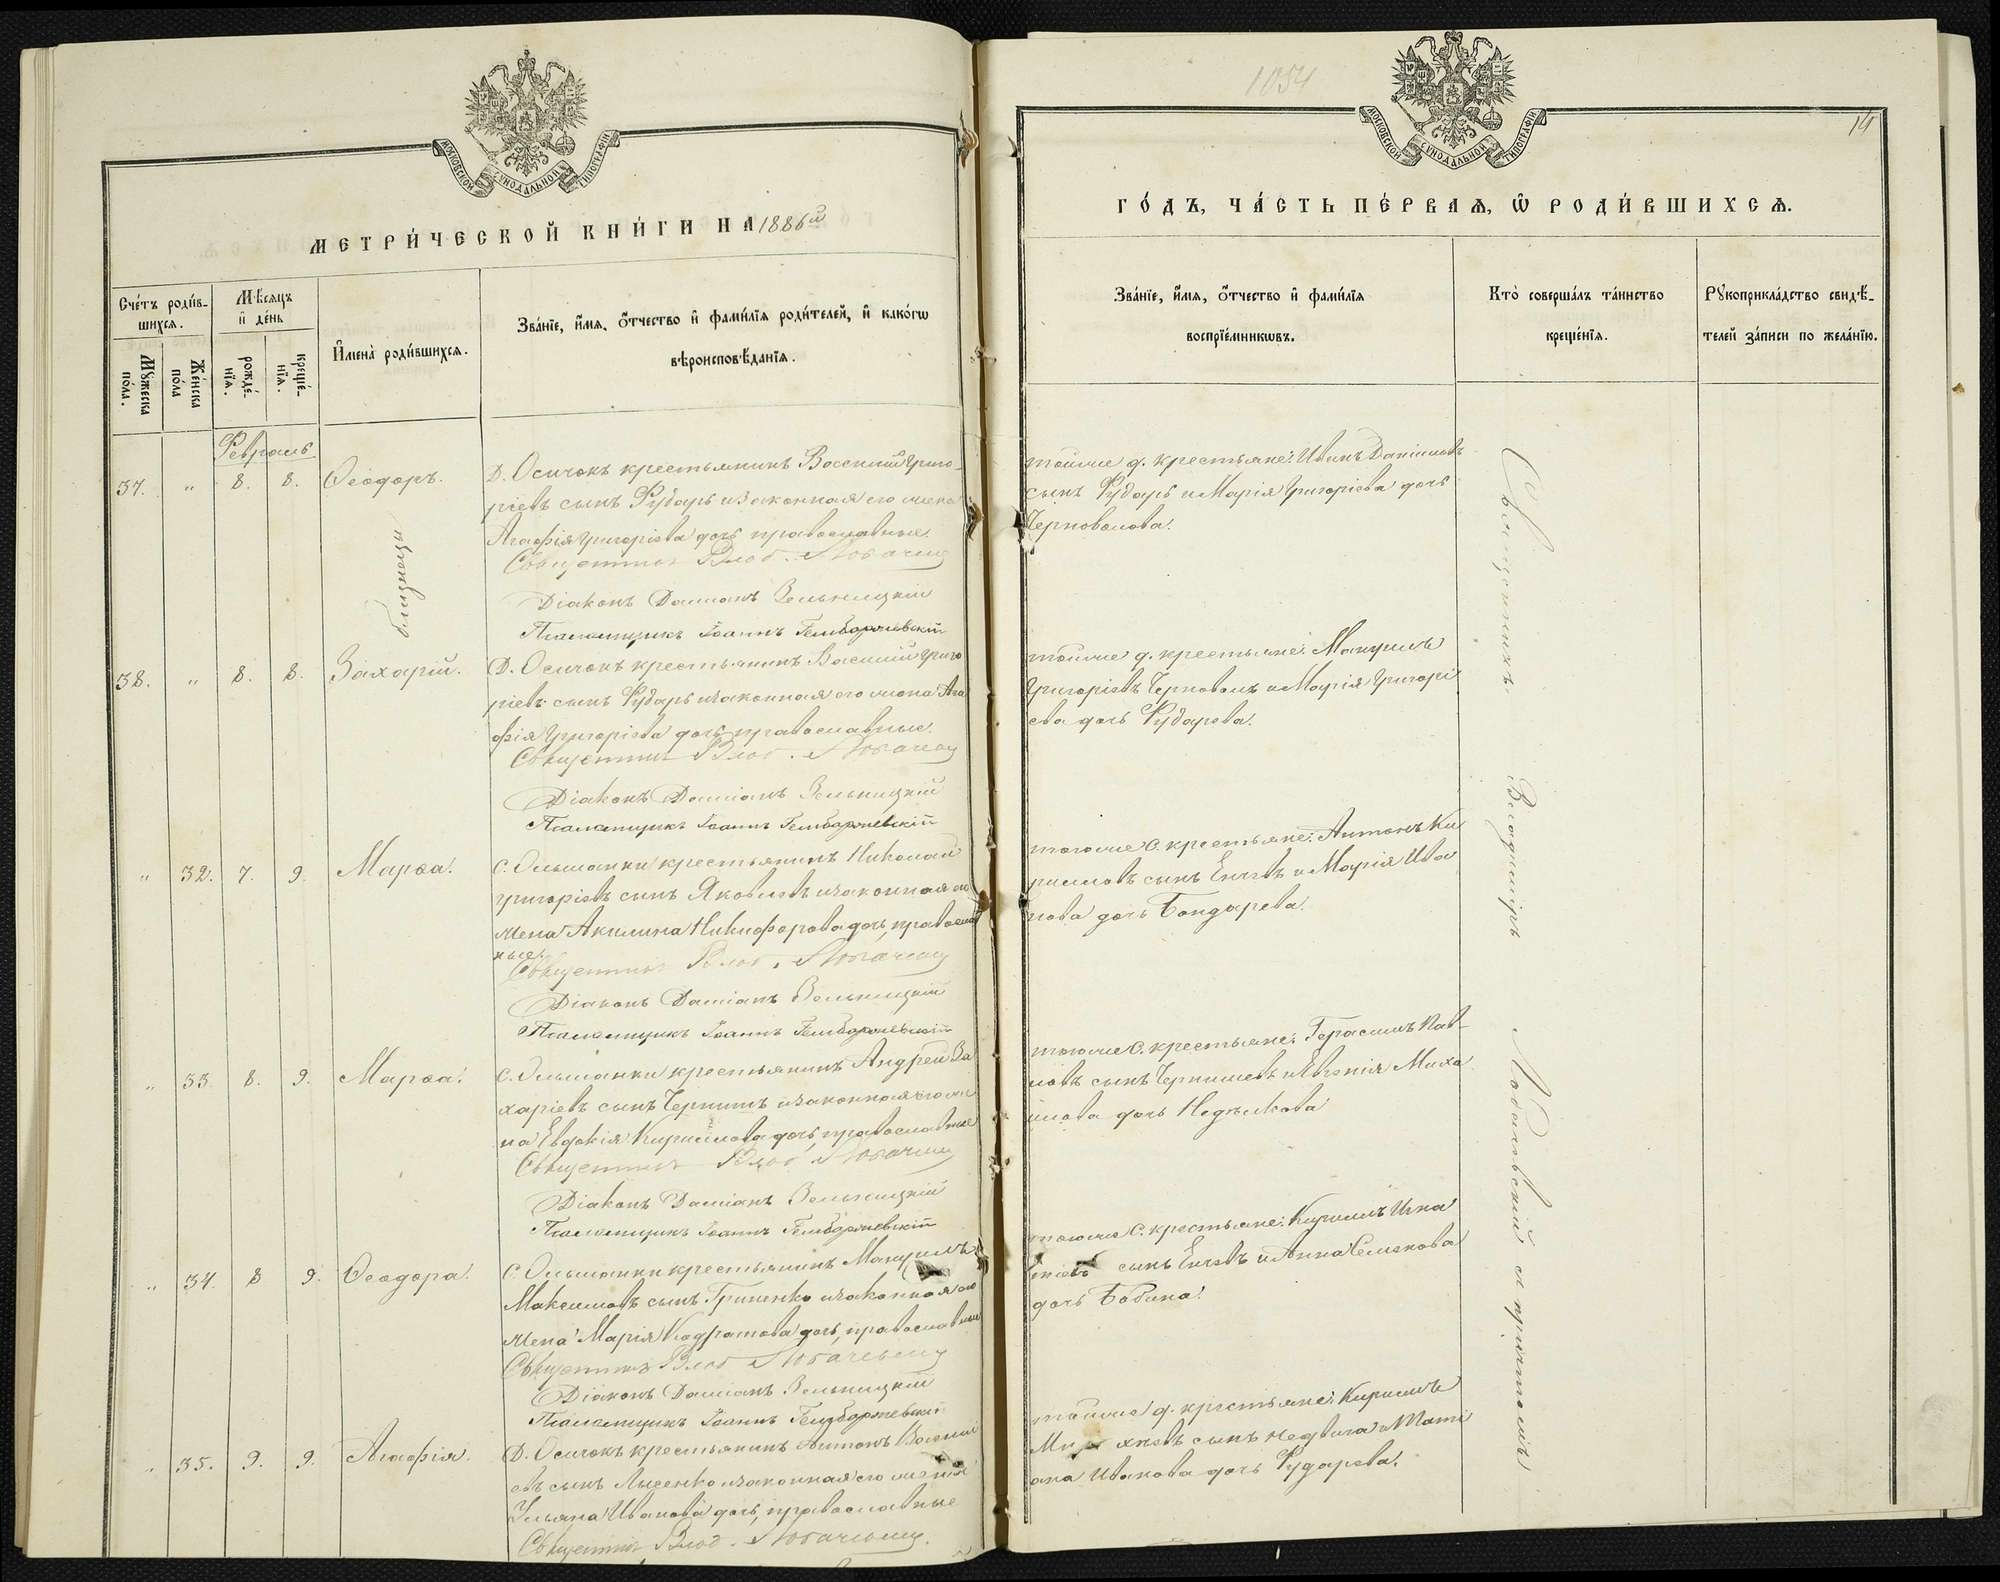 МОСКОВСКОЙ СУНОДАЛЬНОЙ ТИПОГРАФІИ
МЕТРИ́ЧЕСКОЙ КНИ́ГИ НА 1886й
Счéтъ роди́в-
шихсѧ.
Мѣ́сѧцъ
и҆ дéнь
И҆мена̀ роди́вшихсѧ.
Звáнїе, и҆́мѧ, ѻ҆́тчество и҆ фами́лїѧ роди́телей, и҆ какóгѡ
вѣроисповѣ́данїѧ.
Мꙋ́жеска пóла.
Жéнска пóла
рождé-
нїѧ.
крещé-
нїѧ.
Февраль
37. " 8. 8. Ѳеодоръ.
Д. Осичокъ крестьянинъ Василій Григо-
ріевъ сынъ Рударь и законная его жена
Агафія Григоріева дочь, православные.
Священникъ Влад. Лобачев
Діаконъ Даміанъ Зельницкій
Псаломщикъ Іоаннъ Гембаржевскій
близнецы
38. " 8. 8. Захарій.
Д. Осичокъ крестьянинъ Василій Григо
ріевъ сынъ Рударь и законная его жена Ага
фія Григоріева дочь, православные.
Священникъ Влад. Лобачев
Діаконъ Даміанъ Зельницкій
Псаломщикъ Іоаннъ Гембаржевскій
" 32. 7. 9. Марѳа.
С. Ольшанки крестьянинъ Николай
Григоріевъ сынъ Яковлевъ и законная его
жена Акилина Никифорова дочь, православ
ные.
Священникъ Влад. Лобачев
Діаконъ Даміанъ Зельницкій
Псаломщикъ Іоаннъ Гембаржевскій
" 33. 8. 9. Марѳа.
С. Ольшанки крестьянинъ Андрей За
харіевъ сынъ Чернишъ и законная его же
на Евдокія Кириллова дочь, православные
Священникъ Влад. Лобачев
Діаконъ Даміанъ Зельницкій
Псаломщикъ Іоаннъ Гембаржевскій
" 34. 8 9. Ѳеодора.
С. Ольшанки крестьянинъ Мануилъ
Максимовъ сынъ Гриненко и законная его
жена Марія Кодратова дочь, православные
Священникъ Влад. Лобачевск
Діаконъ Даміанъ Зельницкій
Псаломщикъ Іоаннъ Гембаржевскій
" 35. 9. 9. Агафія.
Д. Осичокъ крестьянинъ Антонъ Василі
евъ сынъ Лысенко и законная его жена
Ульяна Иванова дочь, православные
Священникъ Влад. Лобачевск
1054
14
МОСКОВСКОЙ СУНОДАЛЬНОЙ ТИПОГРАФІИ
ГÓДЪ, ЧÁСТЬ ПÉРВАѦ, Ѡ҆ РОДИ́ВШИХСѦ.
Звáнїе, и҆́мѧ, ѻ҆́тчество и҆ фами́лїѧ
воспрїéмникѡвъ.
Кто̀ совершáлъ тáинство
крещéнїѧ.
Рꙋкоприклáдство свидѣ́-
телей зáписи по желáнїю.
той же д. крестьяне: Иванъ Даніиловъ
сынъ Рударь и Марія Григоріева дочь
Черноволова.
той же д. крестьяне: Мануилъ
Григоріевъ Черноволъ и Марія Григорі
ева дочь Рударева.
того же с. крестьяне: Антонъ Ки
рилловъ сынъ Енчевъ и Марія Ива
нова дочь Бондарева.
того же с. крестьяне: Герасимъ Пав-
ловъ сынъ Чернишевъ и Евгенія Миха
илова дочь Недѣлкова
того же с. крестьяне: Кириллъ Игна
тіевъ сынъ Енчевъ и Анна Семенова
дочь Бабина.
той же д. крестьяне: Кириллъ
сынъ Недвига и Тати
ана Иванова дочь Рударева.
Священникъ Володиміръ Лобачевскій съ причтомъ